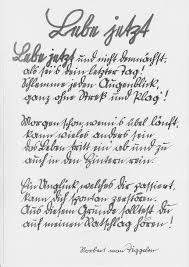 Lebe jetzt
Lebe jetzt und nicht demnächst,
als sei's dein letzter Tag!
Schlemme jeden Augenblick,
ganz ohne Streß und Plag!
Morgen schon, wenn's übel läuft,
kann vieles anders sein,
das Leben tritt ein ab und zu
auf in den Hintern rein.
Ein Unglück, welches dir passiert,
kann dich spontan zerstören.
Aus diesem Grunde solltest du
auf meinen Ratschlag hören!
Norbert van Tiggelen